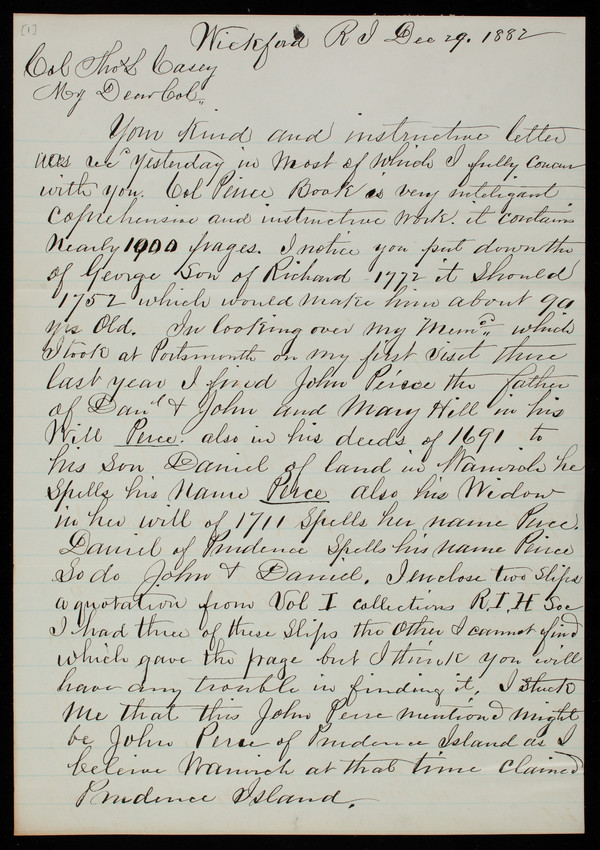 [1]
Wickford R I Dec 29. 1882
Col Thos L Casey
My Dear Col,,
Your Kind and instructive letter
was recd Yesterday in Most of which I fully Concur
with you. Col Peirce Book is very inteligant
Coprehensive and instructive Work. it contains
Nearly 1900 pages. I notice you put down the
of George Son of Richard 1772 it Should
1752 which would make him about 90
yrs Old. In looking over my Memo,, which
I took at Portsmouth on my first Visit there
last year I find John Peirce the father
of Danl & John and Mary Hill in his
Will Perce. also in his deeds of 1691 to
his Son Daniel of land in Warwich he
Spells his Name Perce also his Widow
in her will of 1711 Spells her name Perce.
Daniel of Prudence Spells his name Peirce
So do John & Daniel. I enclose two Slips
a quotation from Vol I collections R.I.H Soc
I had three of these Slips the Other I cannot find
which gave the page but I think you will
have any trouble in finding it, I Stuck
Me that this John Perce mentiond might
be John Perce of Prudence Island as I
beleive Warwich at that time claimed
Prudence Island.